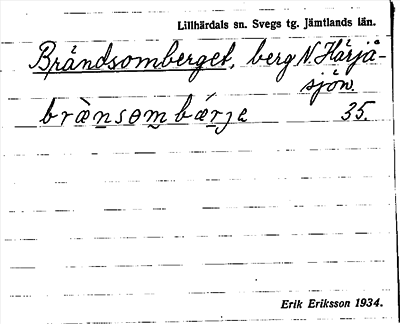 Lillhärdals sn. Svegs tg. Jämtlands län.
Brändsomberget, berg N. Härjå-
sjön.
brænsɵm bærje 35.
Erik Eriksson 1934.